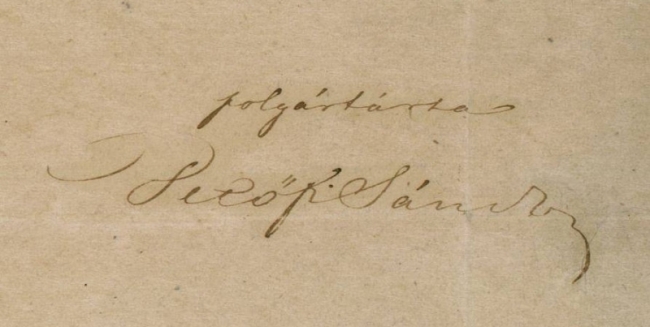 polgártársa
Petőfi Sándor